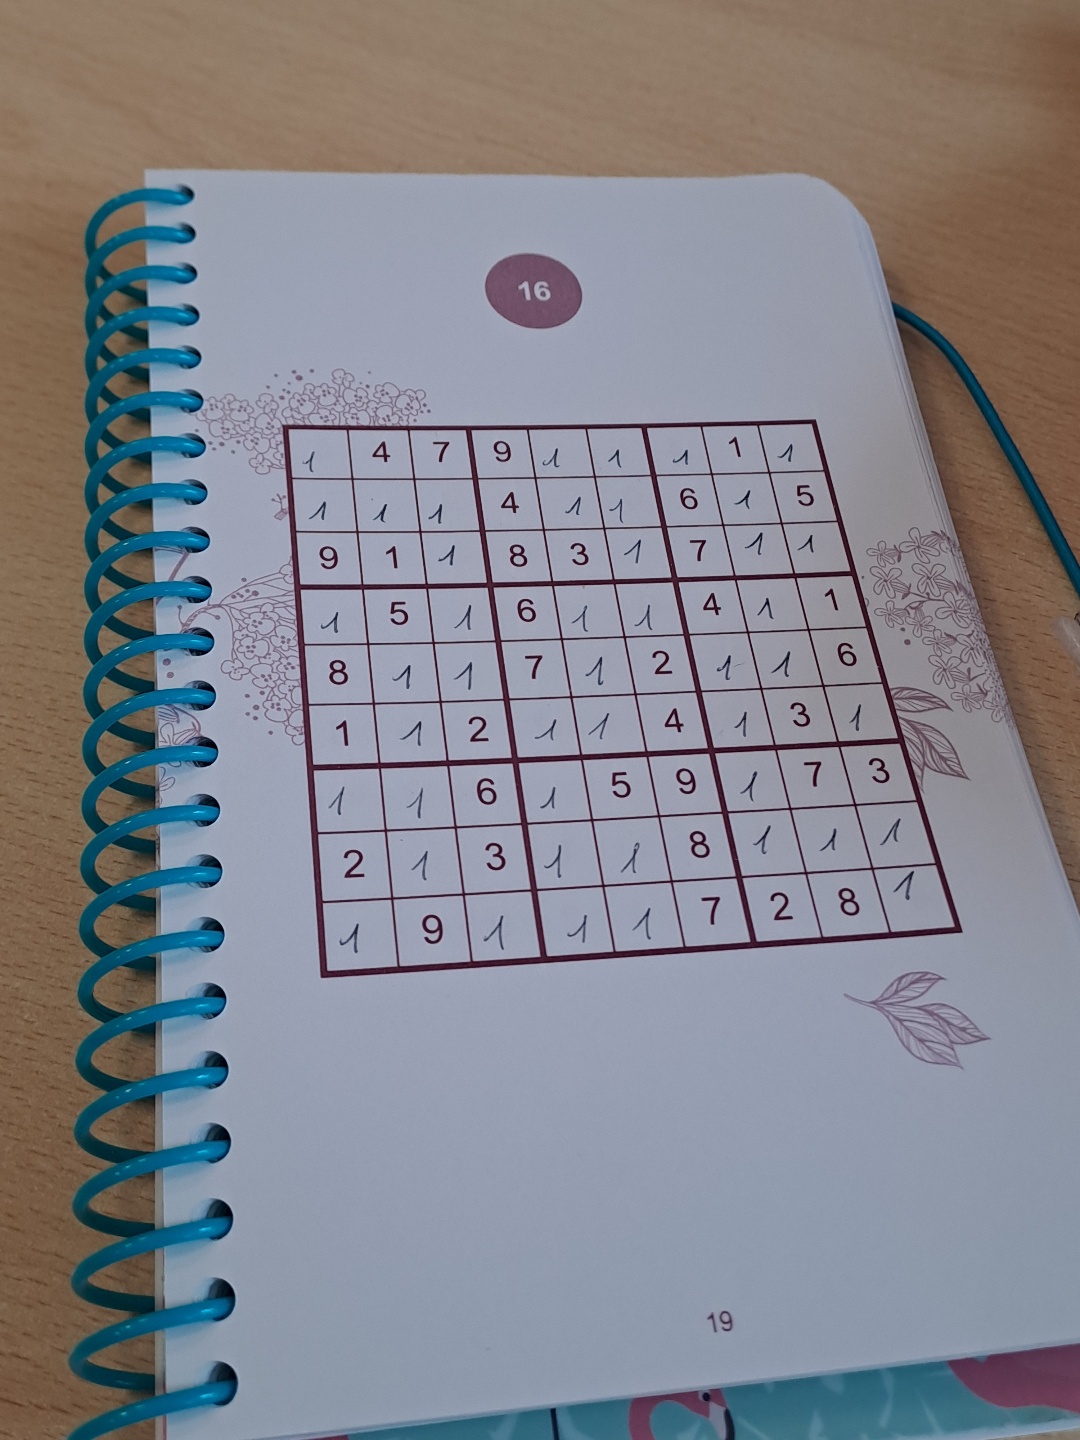 16
1 4 7 9 1 1 1 1 1
1 1 1 4 1 1 6 1 5
9 1 1 8 3 1 7 1 1
1 5 1 6 1 1 4 1 1
8 1 1 7 1 2 1 1 6
1 1 2 1 1 4 1 3 1
1 1 6 1 5 9 1 7 3
2 1 3 1 1 8 1 1 1
1 9 1 1 1 7 2 8 1
19